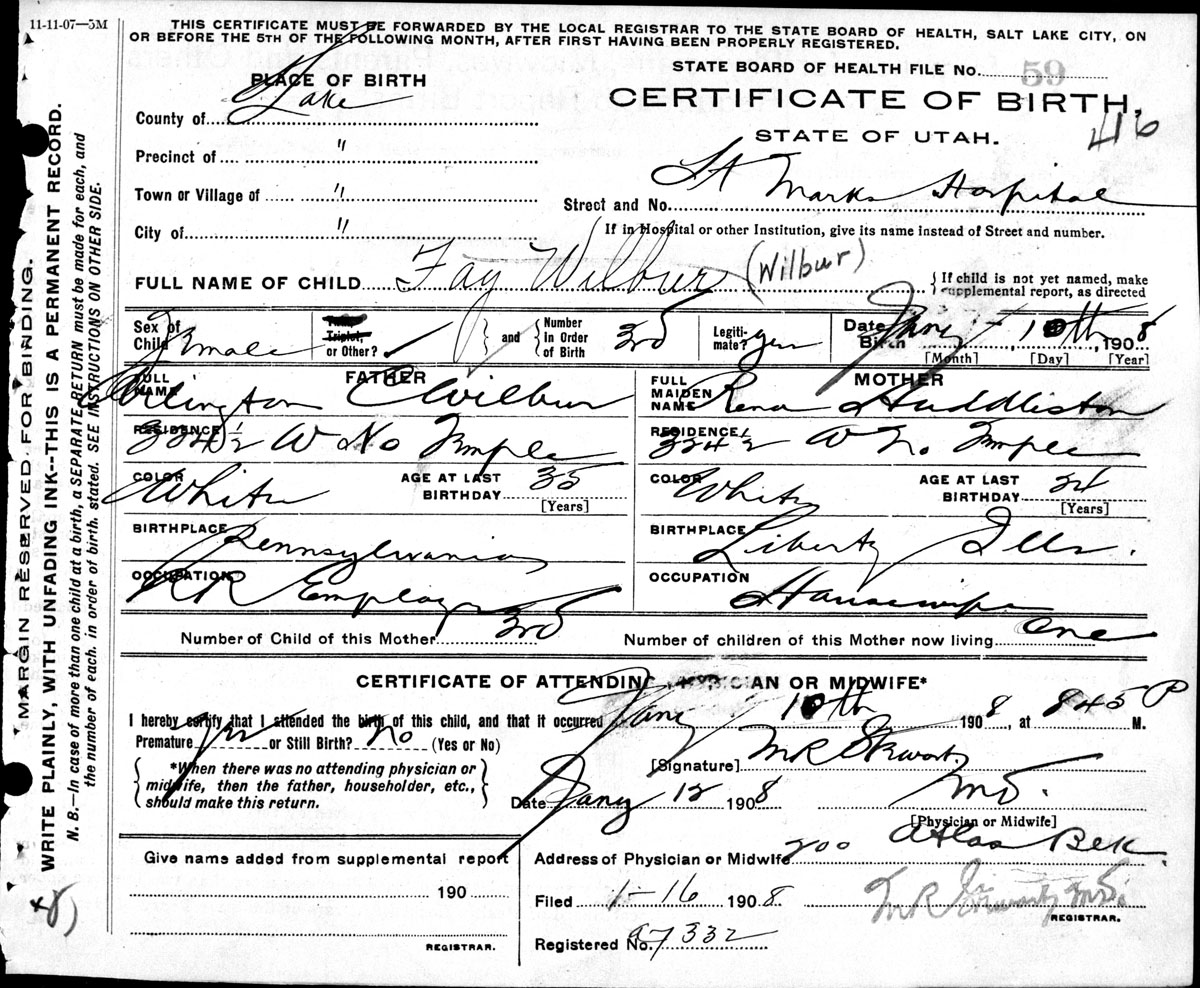 11-11-07—5M
THIS CERTIFICATE MUST BE FORWARDED BY THE LOCAL REGISTRAR TO THE STATE BOARD OF HEALTH, SALT LAKE CITY, ON
OR BEFORE THE 5TH OF THE FOLLOWING MONTH, AFTER FIRST HAVING BEEN PROPERLY REGISTERED.
PLACE OF BIRTH
STATE BOARD OF HEALTH FILE No. 59
CERTIFICATE OF BIRTH,
416
STATE OF UTAH.
County of S Lake
Precinct of "
Town or Village of "
City of "
Street and No. St Marks Hospital
If in Hospital or other Institution, give its name instead of Street and number.
FULL NAME OF CHILD Fay Wilbur (Wilbur)
If child is not yet named, make
supplemental report, as directed
Sex of Child Female
Triplet, or Other?
and
Number in Order of Birth 3rd
Legitimate? yes
Date Birth Jany 10th, 1908
[Month] [Day] [Year]
FATHER
FULL NAME Arlington C Wilbur
RESIDENCE 334½ W No Temple
COLOR White
AGE AT LAST BIRTHDAY 35
[Years]
BIRTHPLACE Pennsylvania
OCCUPATION RR Employee
MOTHER
FULL MAIDEN NAME Rena Huddliston
RESIDENCE 334½ W No Temple
COLOR White
AGE AT LAST BIRTHDAY 24
[Years]
BIRTHPLACE Liberty Ills.
OCCUPATION Housewife
Number of Child of this Mother 3rd
Number of children of this Mother now living One
CERTIFICATE OF ATTENDING PHYSICIAN OR MIDWIFE*
I hereby certify that I attended the birth of this child, and that it occurred Jany 10th 1908, at 845 P M.
Premature yes or Still Birth? No (Yes or No)
*When there was no attending physician or
midwife, then the father, householder, etc.,
should make this return.
[Signature] M R
MD.
Date Jany 12 1908
[Physician or Midwife]
Address of Physician or Midwife 200 Atlas Blk.
Give name added from supplemental report
190
REGISTRAR.
Filed 1-16 1908
M R
REGISTRAR.
Registered No. 97332
MARGIN RESERVED FOR BINDING.
WRITE PLAINLY, WITH UNFADING INK--THIS IS A PERMANENT RECORD.
N. B.—In case of more than one child at a birth, a SEPARATE RETURN must be made for each, and
the number of each, in order of birth, stated. SEE INSTRUCTIONS ON OTHER SIDE.